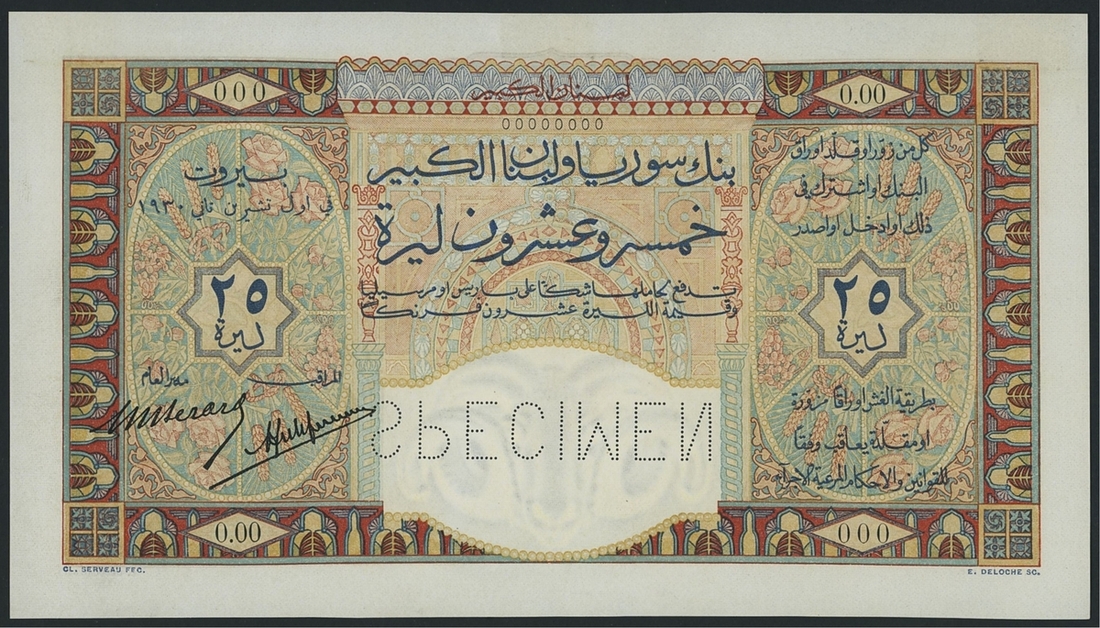 لبنان الكبير
000
0.00
00000000
بنك سوريا ولبنان الكبير
خمسة وعشرون ليرة
تدفع لحاملها شكًا على باريس او مرسيليا
وقيمة الليرة عشرون فرنك
كل من زور او قلد اوراق
البنك او اشترك في
ذلك او ادخل او اصدر
٢٥
ليرة
بطريقة الغش اوراقًا مزورة
او مقلدة يعاقب وفقًا
للقوانين والاحكام المرعية الاجراء
بيروت
في اول تشرين ثاني ١٩٣٠
٢٥
ليرة
المراقب
مدير العام
SPECIMEN
0.00
000
CL. SERVEAU FEC.
E. DELOCHE SC.